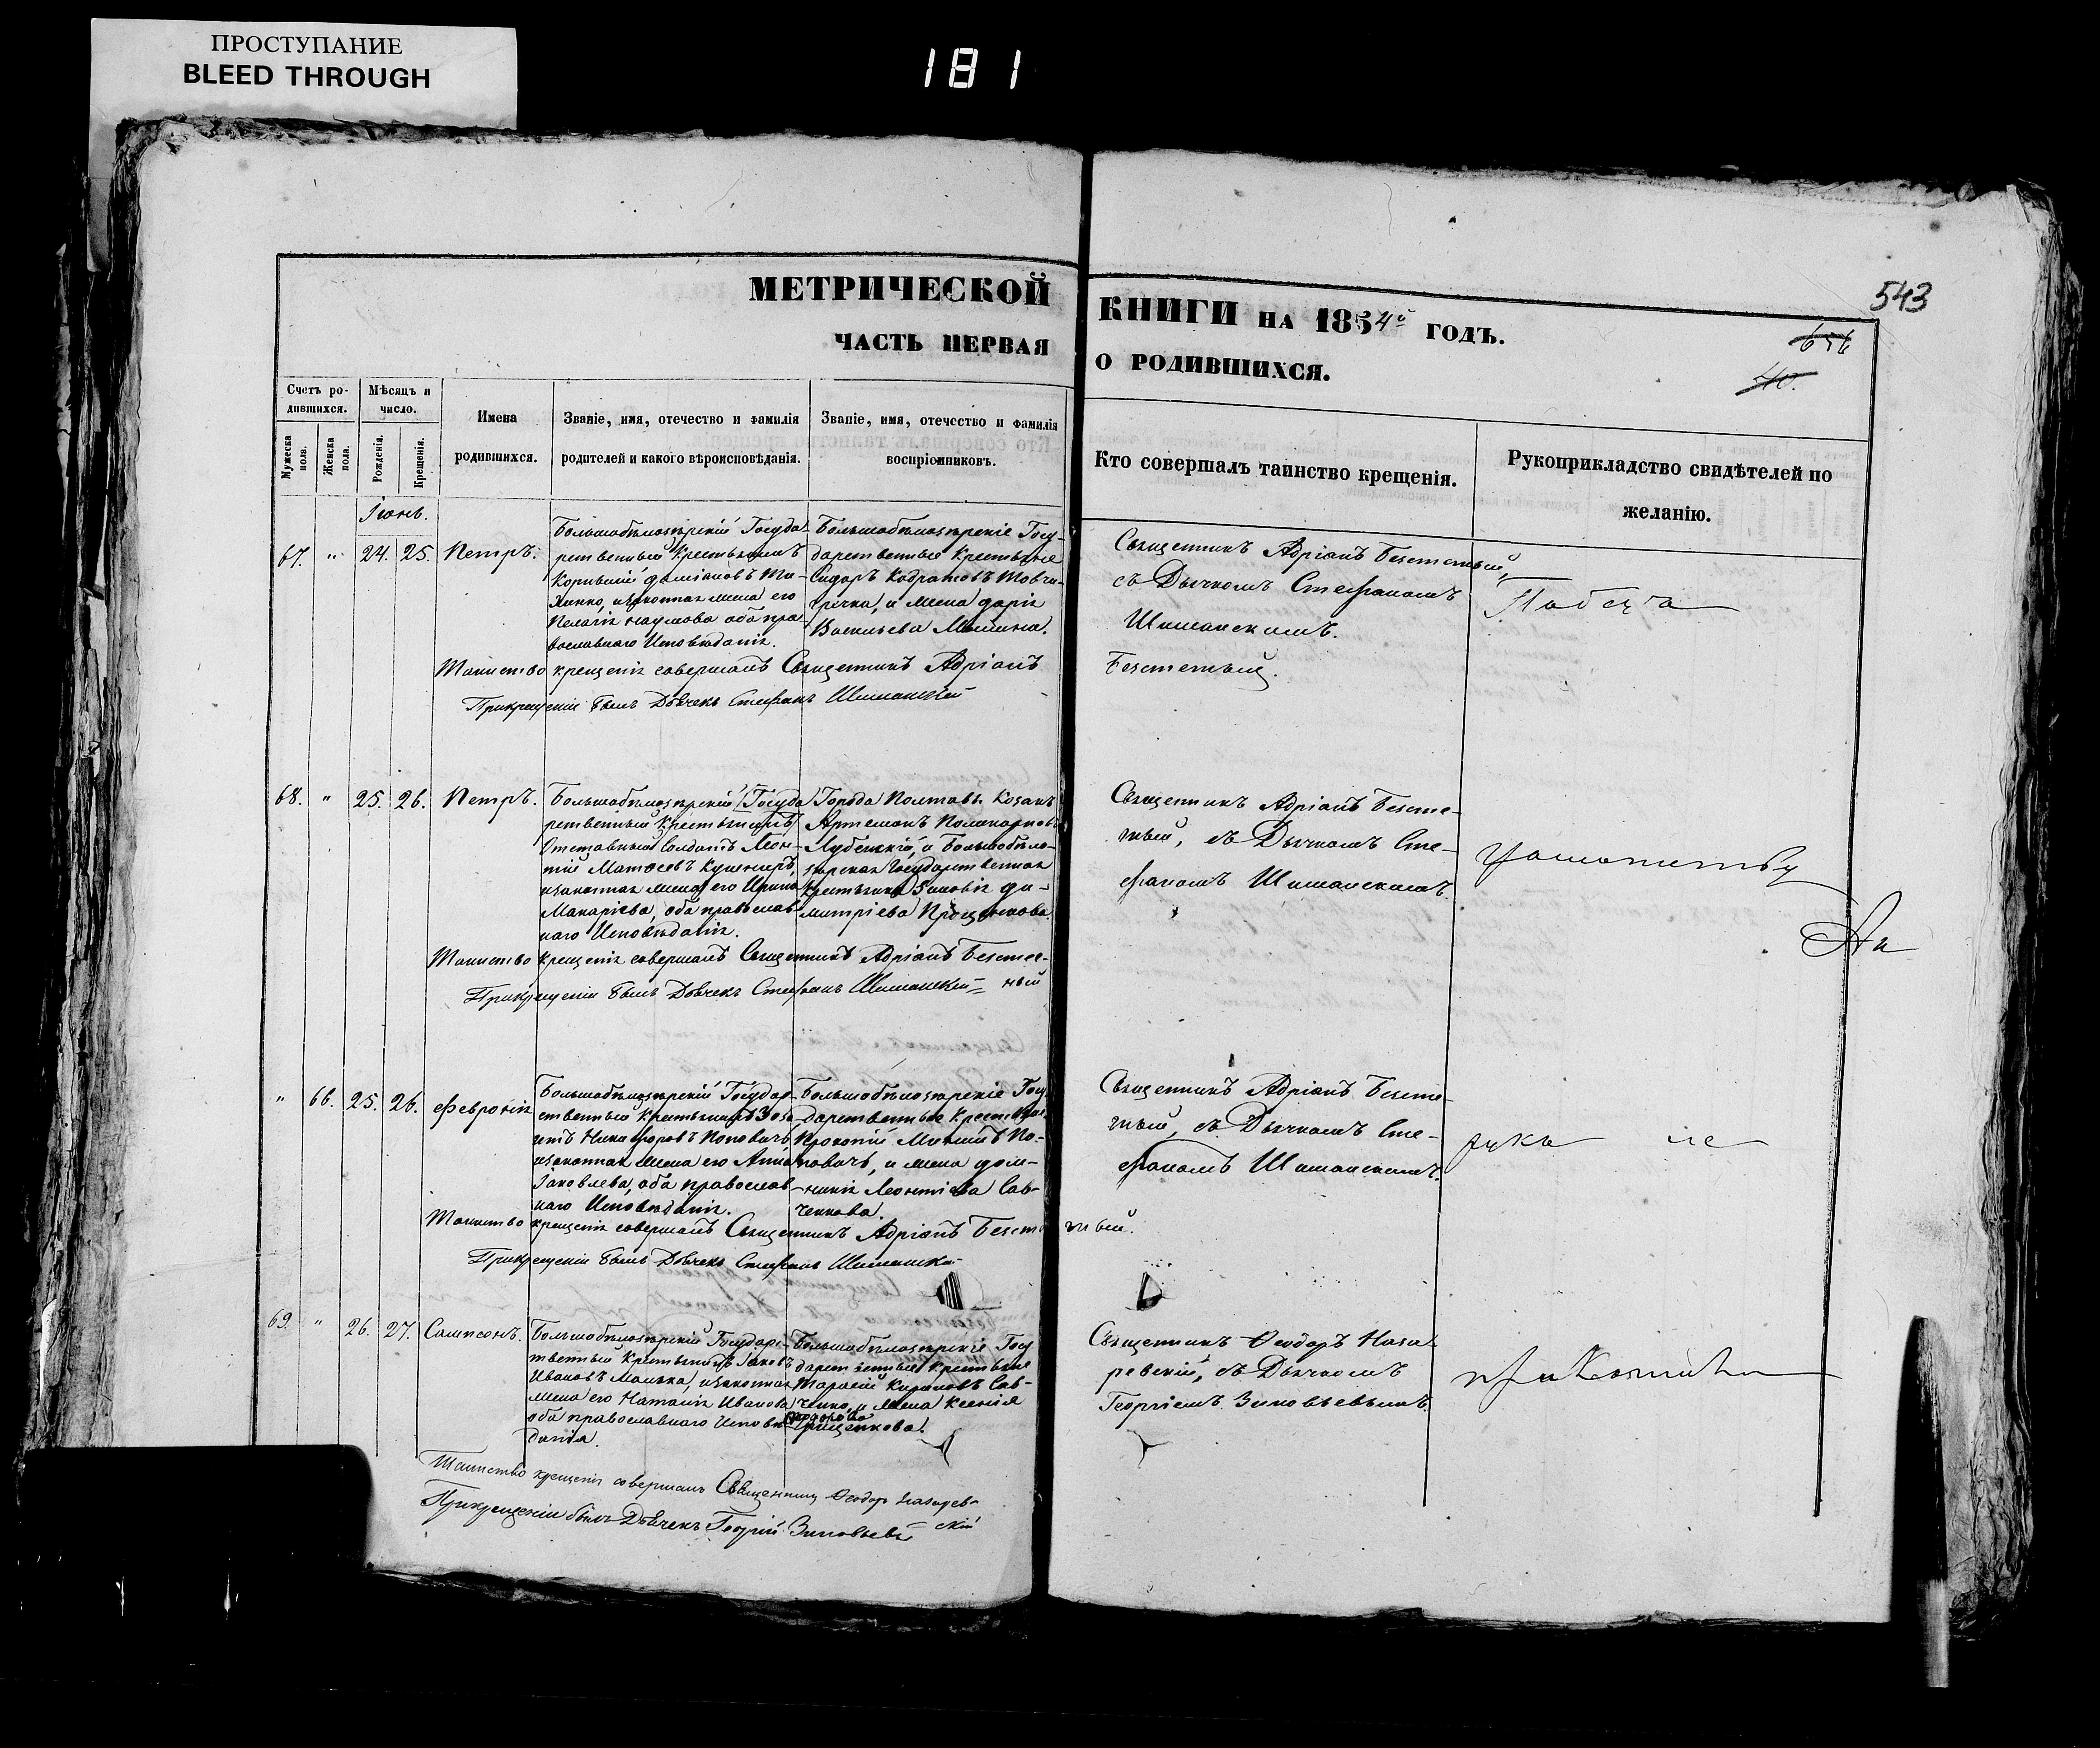 ПРОСТУПАНИЕ
BLEED THROUGH
181
543
МЕТРИЧЕСКОЙ КНИГИ НА 1854й ГОДЪ.
656
40.
ЧАСТЬ ПЕРВАЯ О РОДИВШИХСЯ.
Счетъ ро-
дившихся.
Мужеска пола.
Женска пола.
Мѣсяцъ и
число.
Рожденія.
Крещенія.
Имена
родившихся.
Званіе, имя, отечество и фамилія
родителей и какого вѣроисповѣданія.
Званіе, имя, отечество и фамилія
воспріемниковъ.
Кто совершалъ таинство крещенія.
Рукоприкладство свидѣтелей по
желанію.
Іюнь.
67. " 24. 25. Петръ.
Большобѣлозѣрскій Госуда-
рственный крестьянинъ
Корнилій Даміановъ
законная жена его
Пелагія Наумова оба пра-
вославнаго Исповѣданія.
Большобѣлозѣрскіе Госу-
дарственные крестьяне
Сидоръ Кодратовъ Товчи-
гречка, и жена Дарія
Васильева
Священникъ Адріанъ Безсметный,
съ Дьячкомъ Стефаномъ
Шиманскимъ.
Таинство крещенія совершалъ Священникъ Адріанъ Безсметный.
Прикрещеніи былъ Дьячекъ Стефанъ Шиманскій
68. " 25. 26. Петръ.
Большобѣлозѣрскій Госуда
рственный крестьянинъ
Отставный Солдатъ Леон-
тій Матѳеевъ Кушниръ,
изаконная жена его Ирина
Макаріева, оба православ-
наго Исповѣданія.
Города Полтавы Козакъ
Артемонъ Поликарповъ
Лубенскій, и Большобѣло-
зѣрская Государственная
крестьянка Зиновія Ди-
митріева
Священникъ Адріанъ Безсме-
тный, съ Дьячкомъ Сте-
фаномъ Шиманскимъ.
Таинство крещенія совершалъ Священникъ Адріанъ Безсмет-
ный
Прикрещеніи былъ Дьячекъ Стефанъ Шиманскій
" 66. 25. 26. Февронія
Большобѣлозѣрскій Государ-
ственный крестьянинъ Зоси-
имъ Никифоровъ Поповичъ
изаконная жена его Анна
Іаковлева, оба православ-
наго Исповѣданія.
Большобѣлозѣрскіе Госу-
дарственные крестьяне
Прокопій Мининъ По-
повичъ, и жена Дом-
никія Леонтіева Сав-
ченкова.
Священникъ Адріанъ Безсме-
тный, съ Дьячкомъ Сте-
фаномъ Шиманскимъ.
Таинство крещенія совершалъ Священникъ Адріанъ Безсметный.
Прикрещеніи былъ Дьячекъ Стефанъ Шиманскій
69. " 26. 27. Сампсонъ.
Большобѣлозѣрскій Государс-
твенный крестьянинъ Іаковъ
Ивановъ изаконная
жена его Наталія Иванова
оба православнаго Исповѣ-
данія.
Большобѣлозѣрскіе Госу
дарственные крестьяне
Тарасій Кириловъ Сав-
ченко, и жена Ксенія
Грищенкова.
Священникъ Ѳеодоръ Наза-
ревскій, съ Дьячкомъ
Георгіемъ Зиновьевымъ.
Таинство крещенія совершалъ Священникъ Ѳеодоръ Назарев-
скій
Прикрещеніи былъ Дьячекъ Георгій Зиновьевъ